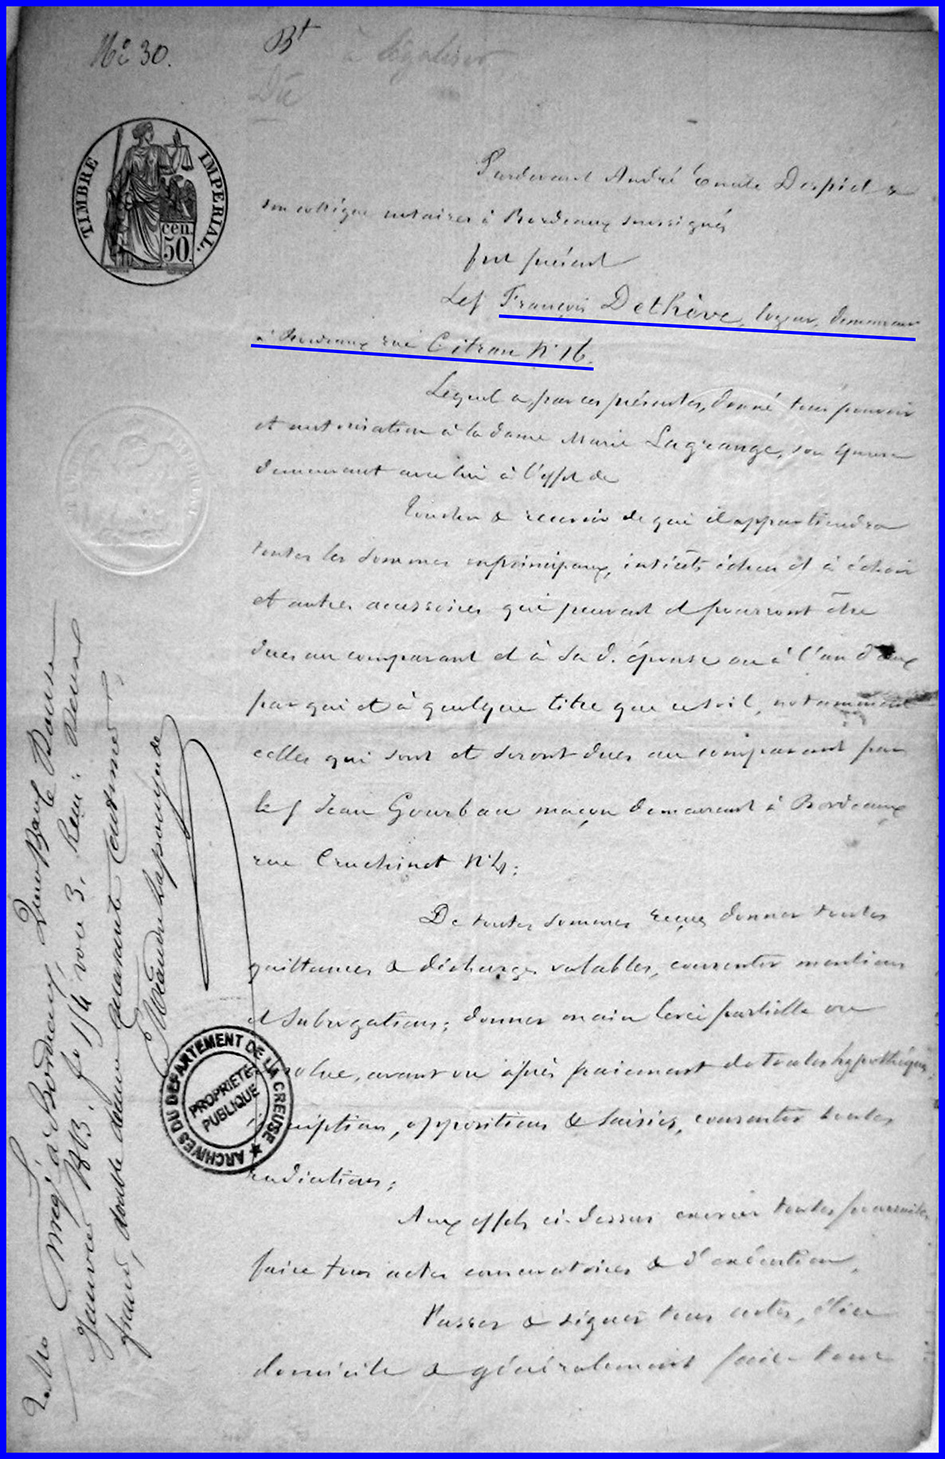 N° 30.
Bt
à légaliser
Dû
TIMBRE IMPÉRIAL.
50 cen.
Pardevant André Émile Despiet &
son collègue notaires à Bordeaux soussignés
fut présent
Le sr François Dethève, demeurant
à Bordeaux rue Citran N° 16.
Lequel a par ces présentes, donné tous pouvoirs
et autorisation à la dame Marie Lagrange, son épouse
demeurant avec lui à l'effet de
Toucher & recevoir de qui il appartiendra
toutes les sommes en principaux, intérêts échus et à échoir
et autres accessoires qui peuvent et pourront être
dues au comparant et à sa d. épouse ou à l'un d'eux
par qui et à quelque titre que ce soit, notamment
celles qui sont et seront dues au comparant par
le sr Jean Gourbau maçon demeurant à Bordeaux
rue Cruchinet N° 4;
De toutes sommes reçues donner toutes
quittances & décharges valables, consentir mentions
et subrogations; donner main levée partielle ou
avant ou après paiement de toutes hypothèques,
inscriptions, oppositions & saisies, consentir toutes
radiations;
Aux effets ci-dessus exercer toutes poursuites
faire tous actes conservatoires & d'exécution,
Passer & signer tous actes, élire
domicile & généralement faire tout
ARCHIVES DU DÉPARTEMENT DE LA CREUSE
PROPRIÉTÉ
PUBLIQUE
Enregé à Bordeaux
Janvier f° 154 vo c 3. Reçu deux
francs, double décime quarante centimes